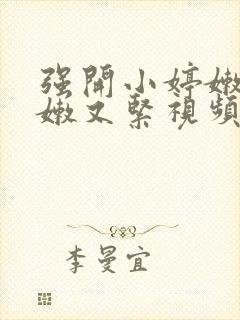 强開小婷嫩
嫩又緊視頻
李曼宜